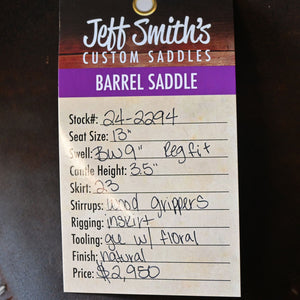 Jeff Smith's
CUSTOM SADDLES
BARREL SADDLE
Stock#: 24-2294
Seat Size: 13"
Swell: BW 9" Reg fit
Cantle Height: 3.5"
Skirt: 23
Stirrups: wood grippers
Rigging: inskirt
Tooling: gue w/ floral
Finish: natural
Price: $2,950